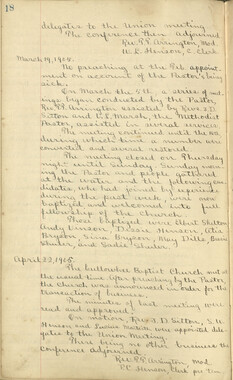 18
delegates to the Union meeting
The conference then Adjourned
Rev. P.R. Arrington, Mod.
W.L. Henson, C. Clerk.
March 14, 1905.
No preaching at the Feb appoint
ment on account of the Pastor's being
sick.
On March the 5th, a series of meet
ings began conducted by the Pastor,
Rev. P.R. Arrington, assisted by Revs. I.D.
Sutton and C.S. Marsh, the Methodist
Pastor assisted in several services.
The meeting continued until the
during which time a number were
converted and several restored.
The meeting closed on Thursday
night until Sunday. Sunday morn
ing the Pastor and people gathered
at the water and the following can
didates, who had joined by experience
during the past week, were now
baptised and welcomed into full
fellowship of the Church.
Those baptised were
Andy Vinson, Henson,
Bryson, Bryson, May Dills,
Shuler, and Sadie Shuler.
April 22, 1905.
The Cullowhee Baptist Church met at
the usual time after preaching by the Pastor,
the Church was announced in order for the
transaction of business.
The minutes of last meeting were
read and approved.
On motion, Revs. I.D. Sutton,
Henson and were appointed dele
gates to the Union Meeting.
There being no other business the
conference Adjourned.
Rev. P.R. Arrington, Mod.
Henson, Clk pro tem